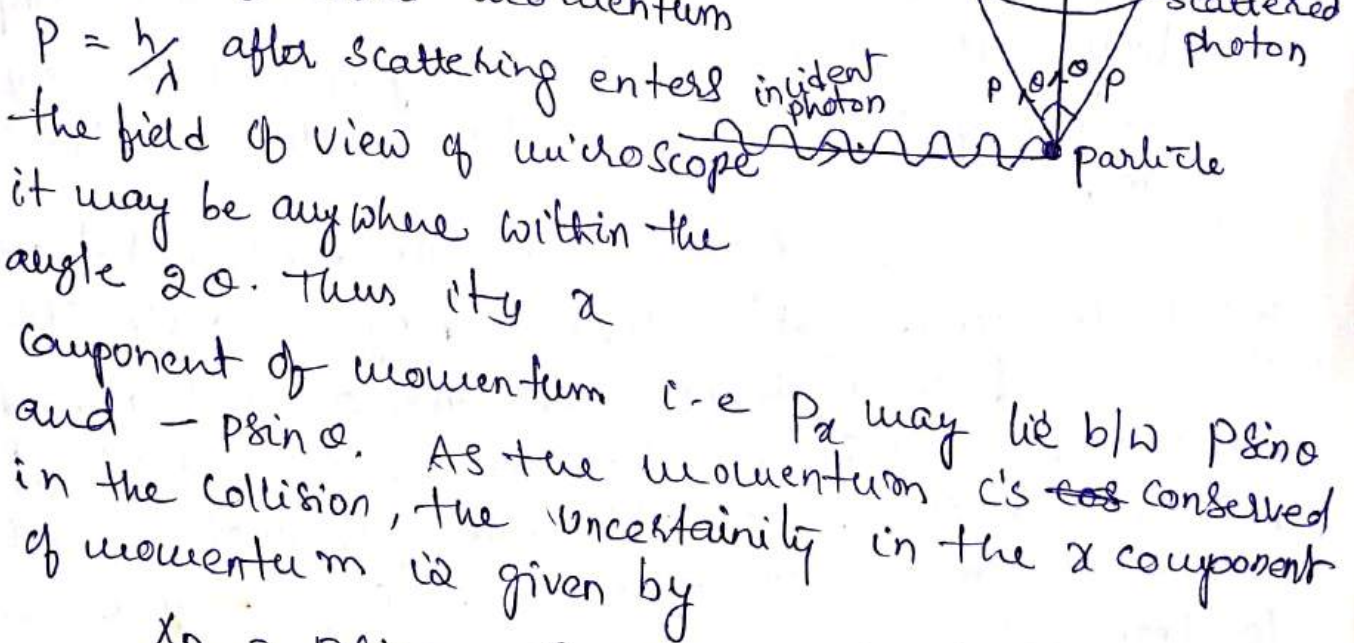 momentum
P = h/λ after scattering enters
the field of view of microscope
it may be anywhere within the
angle 2θ. Thus its x
component of momentum i.e Px may lie b/w psinθ
and - psinθ. As the momentum is cos conserved
in the collision, the uncertainity in the x component
of momentum is given by
scattered
photon
incident
photon
P θ θ P
particle